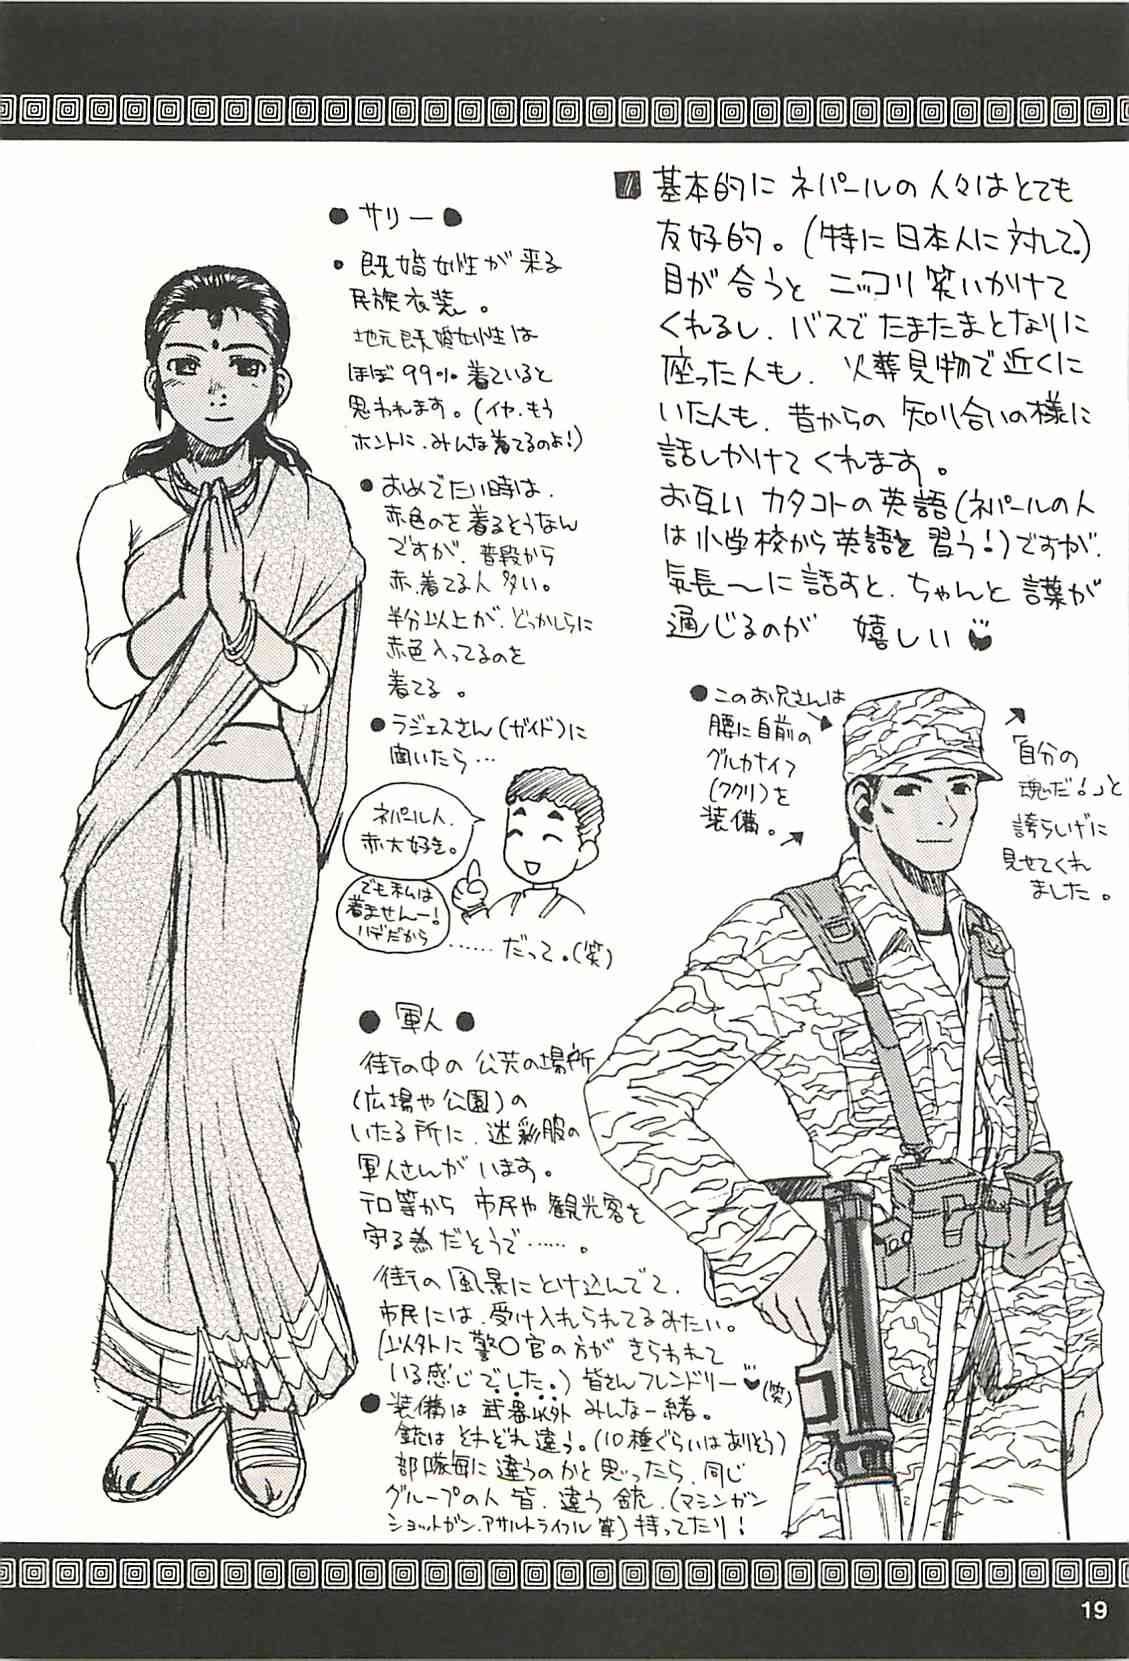 ■ 基本的に ネパールの 人々はとても
友好的。(特に日本人に対して。)
目が合うと ニッコリ 笑いかけて
くれるし、バスで たまたまとなりに
座った人も、火葬見物で近くに
いた人も、昔からの 知り合いの様に
話しかけて くれます。
お互い カタコトの英語(ネパールの人
は小学校から英語を習う!)ですが、
気長〜に話すと、ちゃんと 言葉が
通じるのが 嬉しい
●サリー●
・既婚女性が 来る
民族衣装。
地元既婚女性は
ほぼ99%着ていると
思われます。(イヤ、もう
ホントに、みんな着てるのよ!)
●おめでたい時は、
赤色のを着るそうなん
ですが、普段から
赤、着てる人 多い。
半分以上が、どっかしらに
赤色入ってるのを
着てる。
●ラジェスさん(ガイド)に
聞いたら…
ネパール人、
赤大好き。
でも私は
着ませんー!
ハデだから
……だって。(笑)
●このお兄さんは
腰に自前の
グルカナイフ
(ククリ)を
装備。
「自分の
魂だ!」と
誇らしげに
見せてくれ
ました。
●軍人●
街の中の 公共の場所
(広場や公園)の
いたる所に、迷彩服の
軍人さんが います。
テロ等から 市民や観光客を
守る為だそうで……。
街の風景にとけ込んでて、
市民には、受け入れられてるみたい。
(以外に警○官の方が きらわれて
いる感じでした。)皆さんフレンドリー(笑)
●装備は武器以外みんな一緒。
銃はそれぞれ違う。(10種ぐらいはありそう)
部隊毎に違うのかと思ったら、同じ
グループの人 皆、違う銃、(マシンガン
ショットガン、アサルトライフル等)持ってたり!
19